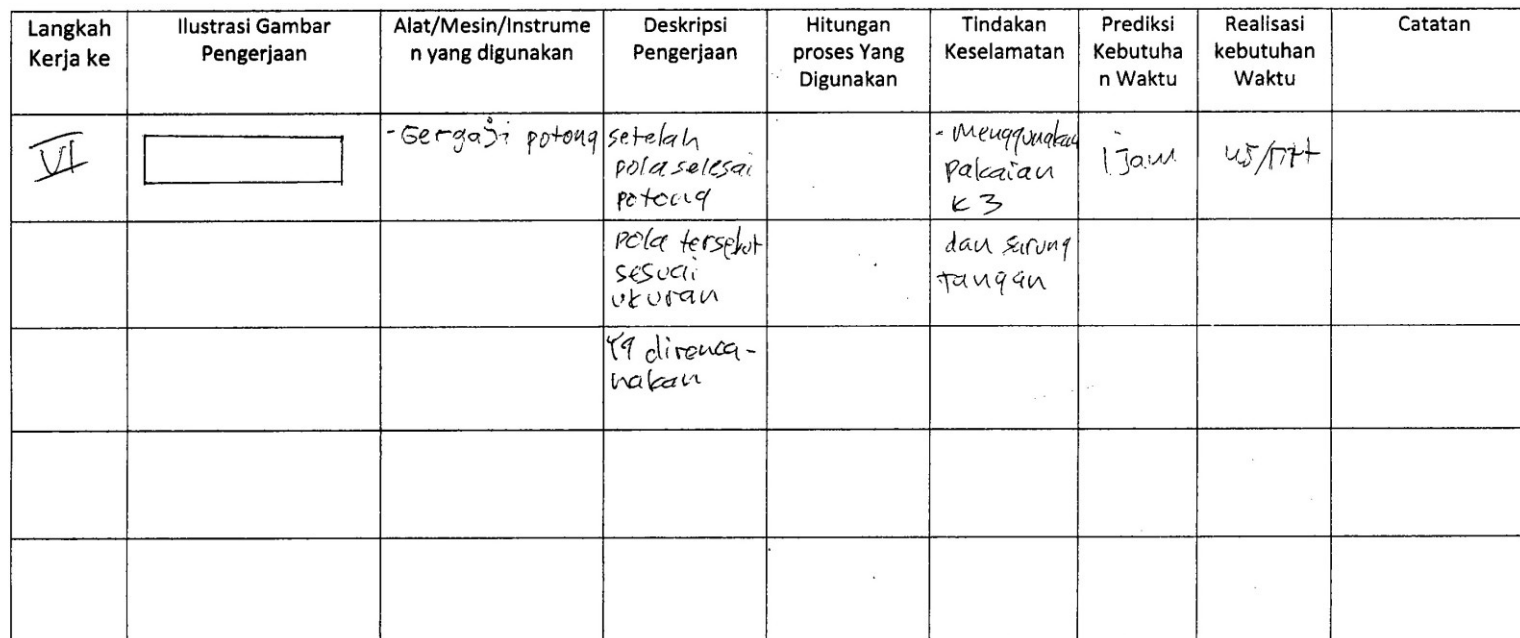 Langkah
Kerja ke
Ilustrasi Gambar
Pengerjaan
Alat/Mesin/Instrume
n yang digunakan
Deskripsi
Pengerjaan
Hitungan
proses Yang
Digunakan
Tindakan
Keselamatan
Prediksi
Kebutuha
n Waktu
Realisasi
kebutuhan
Waktu
Catatan
VI
- Gergaji potong
setelah
pola selesai
potong
- Menggunakan
pakaian
K3
1 Jam
pola tersebut
sesuai
ukuran
dan sarung
tangan
yg direnca-
nakan